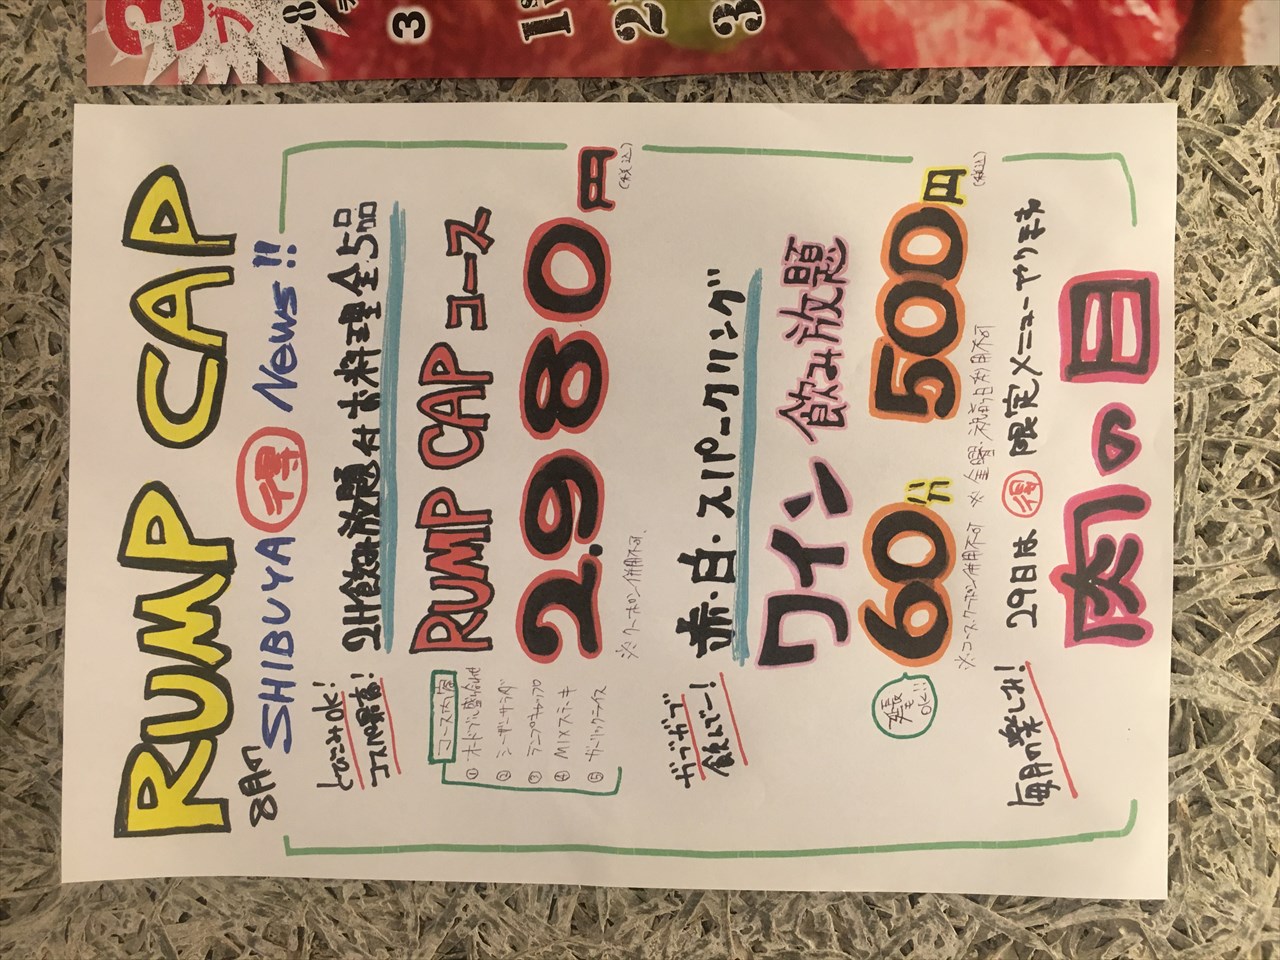 RUMP CAP
8月の
SHIBUYA 得 News!!
とびこみOK!
コスパ最高!
2H飲み放題付 お料理全5品
RUMP CAP コース
2.980円
(税込)
コース内容
① オードブル盛り合わせ
② シーザーサラダ
③ ランプキャップ
④ MIXステーキ
⑤ ガーリックライス
※クーポン併用不可
ガブガブ
飲んじゃー!
赤・白・スパークリング
ワイン 飲み放題
60分 500円
(税込)
延長
OK!!
※コース、クーポン併用不可 ※金曜・祝前日利用不可
毎月の楽しみ!
29日は 得 限定メニューアリます
肉の日
3
ブ
8
3
1
2
3